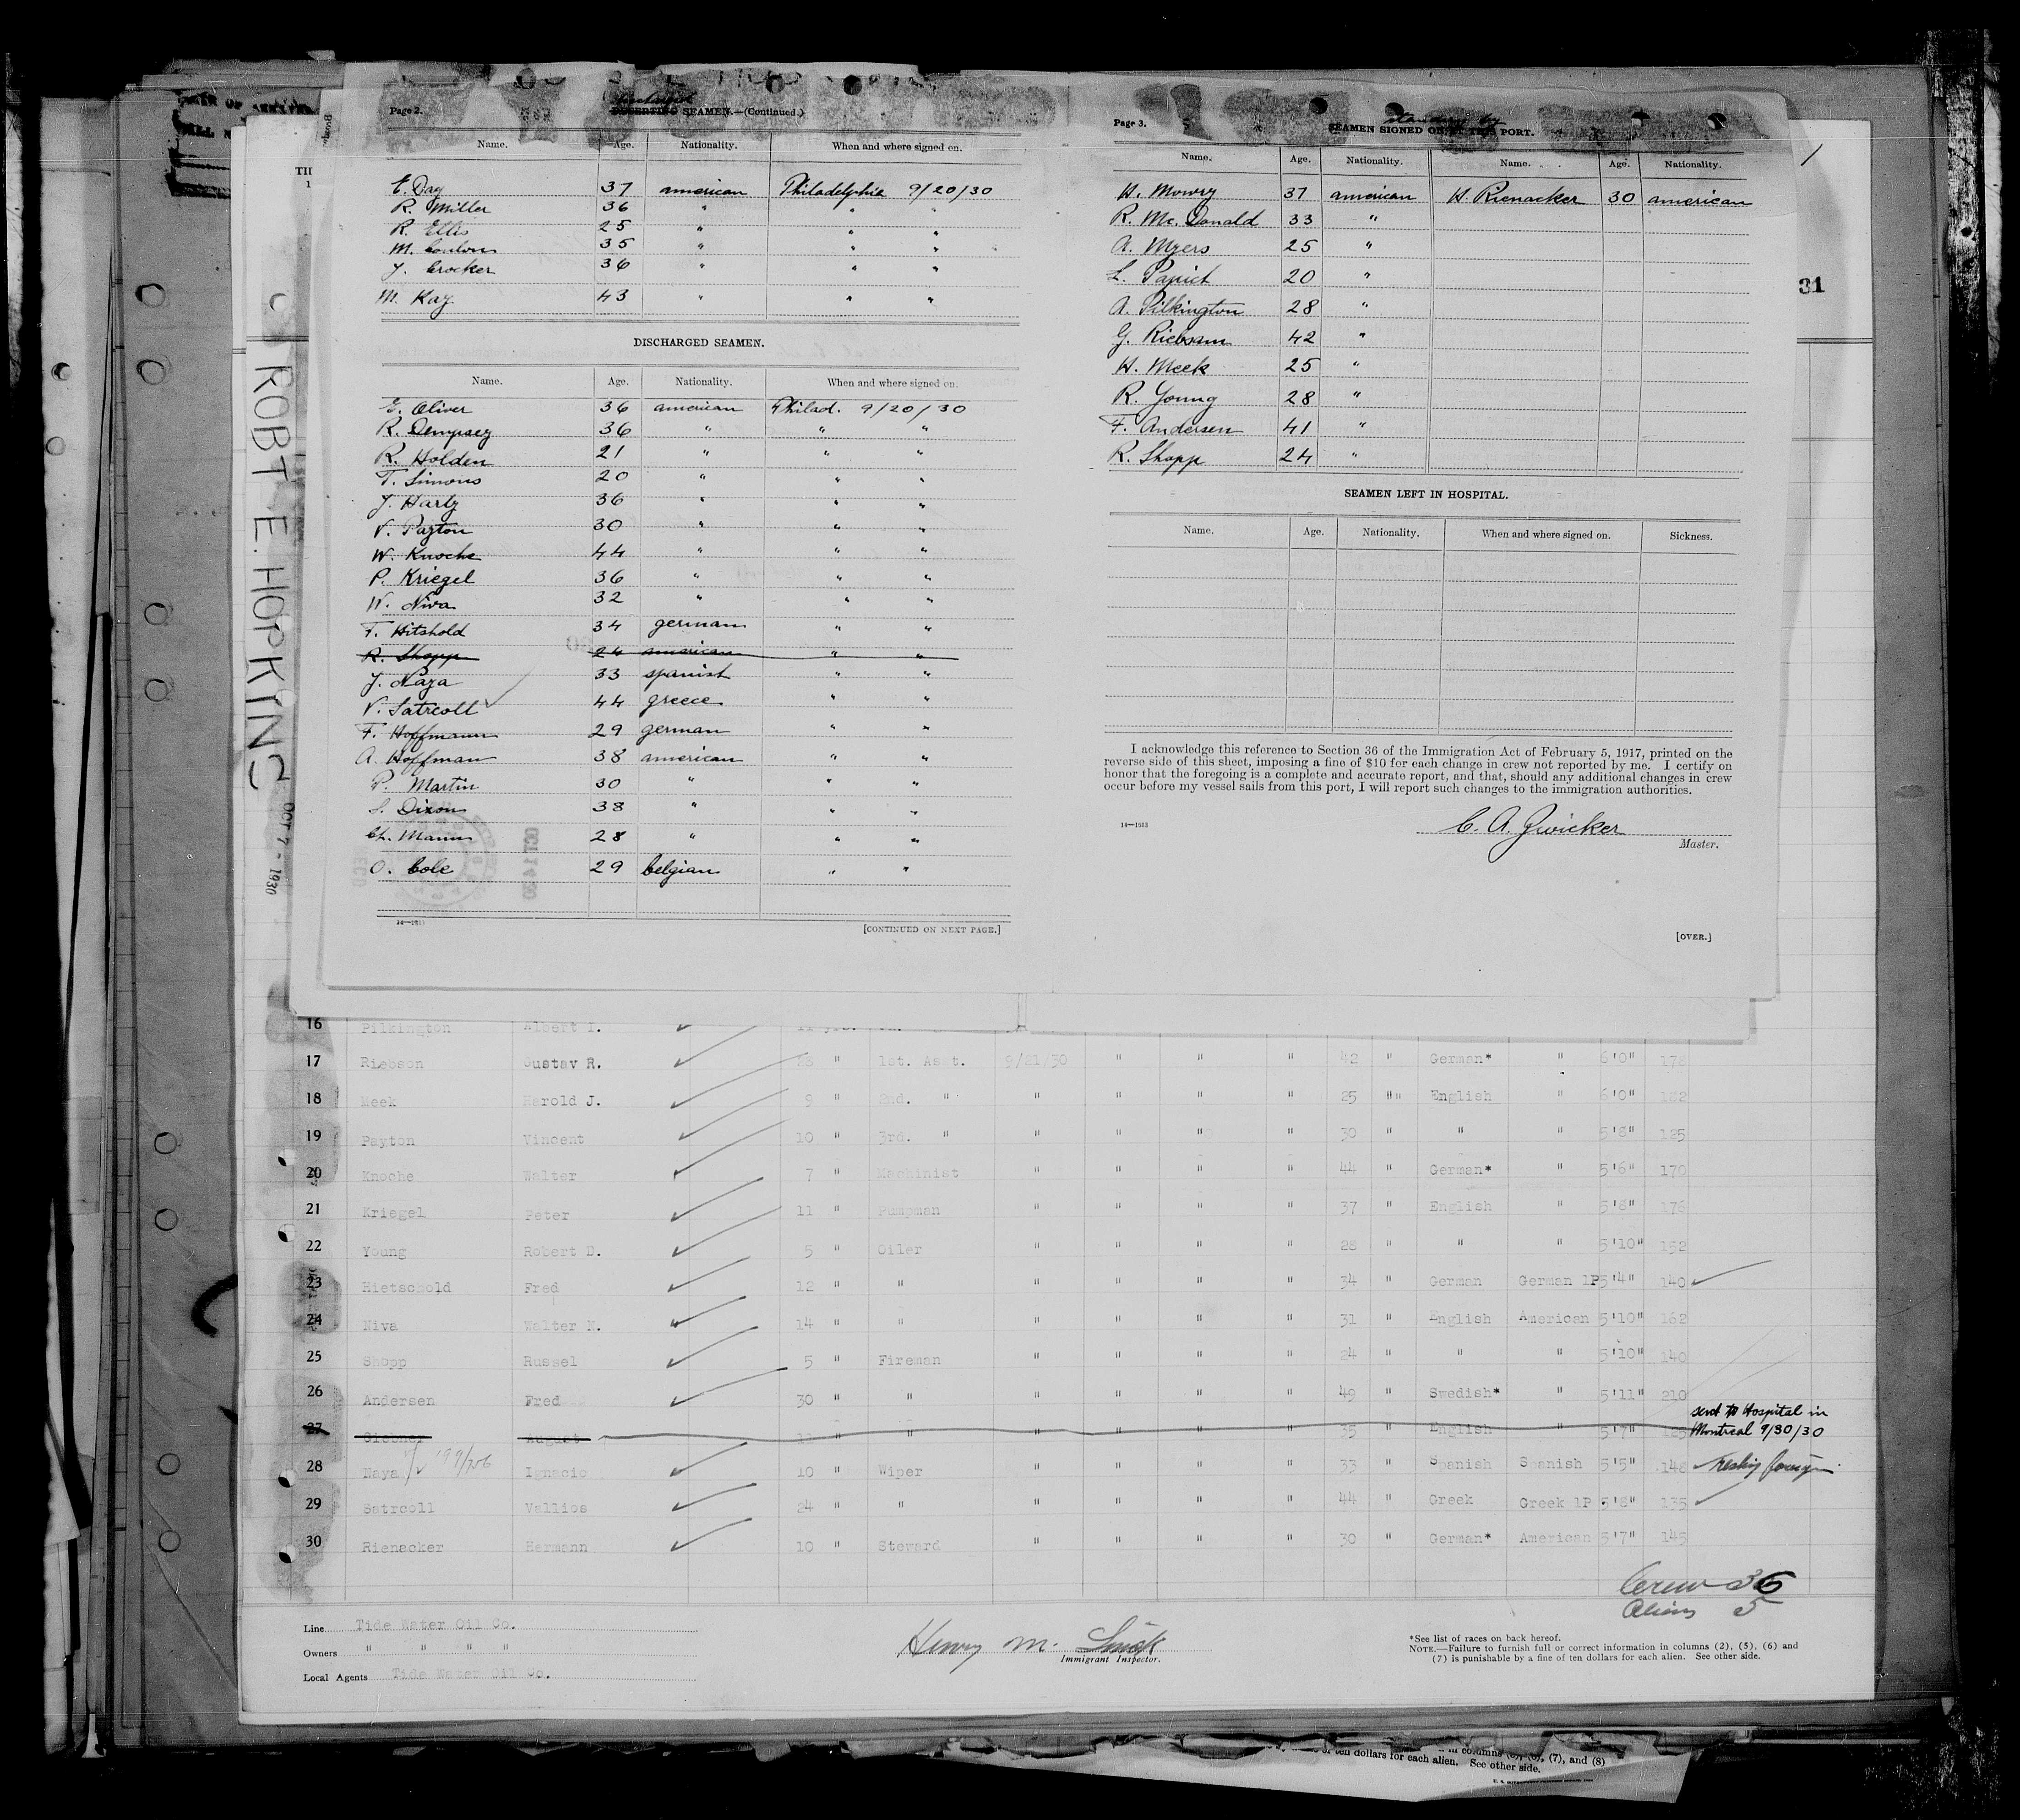 Page 2.
SEAMEN.—(Continued.)
Name. Age. Nationality. When and where signed on.
E. Day 37 american Philadelphia 9/20/30
R. Miller 36 " " "
R. Ellis 25 " " "
M. Conlon 35 " " "
J. Crocker 36 " " "
M. Kay 43 " " "
DISCHARGED SEAMEN.
Name. Age. Nationality. When and where signed on.
E. Oliver 36 american Philad. 9/20/30
R. Dempsey 36 " " "
R. Holden 21 " " "
T. Simons 20 " " "
J. Hartz 36 " " "
V. Payton 30 " " "
W. Knoche 44 " " "
P. Kriegel 36 " " "
W. Niva 32 " " "
F. Hitshold 34 german " "
R. Shopp 24 american " "
J. Naya 33 spanish " "
V. Satrcoll 44 greece " "
F. Hoffmann 29 german " "
A. Hoffman 38 american " "
P. Martin 30 " " "
S. Dixon 38 " " "
Ch. Mann 28 " " "
O. Cole 29 belgian " "
[CONTINUED ON NEXT PAGE.]
Page 3.
standing by
SEAMEN SIGNED ON AT THIS PORT.
Name. Age. Nationality. Name. Age. Nationality.
H. Mowry 37 american H. Rienacker 30 american
R. Mc. Donald 33 "
A. Myers 25 "
L. Papich 20 "
A. Pilkington 28 "
G. Riebsam 42 "
H. Meek 25 "
R. Young 28 "
F. Andersen 41 "
R. Shopp 24 "
SEAMEN LEFT IN HOSPITAL.
Name. Age. Nationality. When and where signed on. Sickness.
I acknowledge this reference to Section 36 of the Immigration Act of February 5, 1917, printed on the
reverse side of this sheet, imposing a fine of $10 for each change in crew not reported by me. I certify on
honor that the foregoing is a complete and accurate report, and that, should any additional changes in crew
occur before my vessel sails from this port, I will report such changes to the immigration authorities.
14—1513
C. A. Zwicker
Master.
[OVER.]
31
ROBT E. HOPKINS
OCT 7 - 1930
16 Pilkington Albert I.
17 Riebson Gustav R. 23 " 1st. Asst. 9/21/30 " " " 42 " German* " 6'0" 172
18 Meek Harold J. 9 " 2nd. " " " " " 25 " English " 6'0" 182
19 Payton Vincent 10 " 3rd. " " " " " 30 " " " 5'8" 125
20 Knoche Walter 7 " Machinist " " " " 44 " German* " 5'6" 170
21 Kriegel Peter 11 " Pumpman " " " " 37 " English " 5'8" 176
22 Young Robert D. 5 " Oiler " " " " 28 " " " 5'10" 152
23 Rietschold Fred 12 " " " " " " 34 " German German 1P 5'4" 140
24 Niva Walter N. 14 " " " " " " 31 " English American 5'10" 162
25 Shopp Russel 5 " Fireman " " " " 24 " " " 5'10" 140
26 Andersen Fred 30 " " " " " " 49 " Swedish* " 5'11" 210
27 August 11 " " " " " " 35 " English " 5'7" 125 sent to Hospital in
Montreal 9/30/30
28 Naya Ignacio 10 " Wiper " " " " 33 " Spanish Spanish 5'5" 148
29 Satrcoll Vallios 24 " " " " " " 44 " Greek Greek 1P 5'8" 135
30 Rienacker Hermann 10 " Steward " " " " 30 " German* American 5'7" 145
Crew 36
Aliens 5
Line Tide Water Oil Co.
Owners " " " "
Local Agents Tide Water Oil Co.
Henry M. Smick
Immigrant Inspector.
*See list of races on back hereof.
NOTE.—Failure to furnish full or correct information in columns (2), (5), (6) and
(7) is punishable by a fine of ten dollars for each alien. See other side.
in columns (7), and (8)
of ten dollars for each alien. See other side.